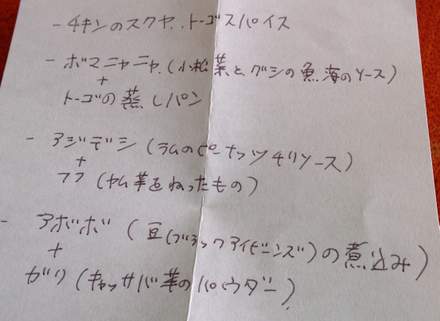 - チキンのスクヤ. トーゴスパイス
- ボマニャニャ. (小松菜と、グシの魚海のソース)
+
トーゴの蒸しパン
- アジデシ (ラムのピーナッツチリソース)
+
フフ (ヤム芋をねったもの)
- アボボ (豆(ブラックアイビーンズ)の煮込み)
+
ガリ (キャッサバ芋のパウダー)